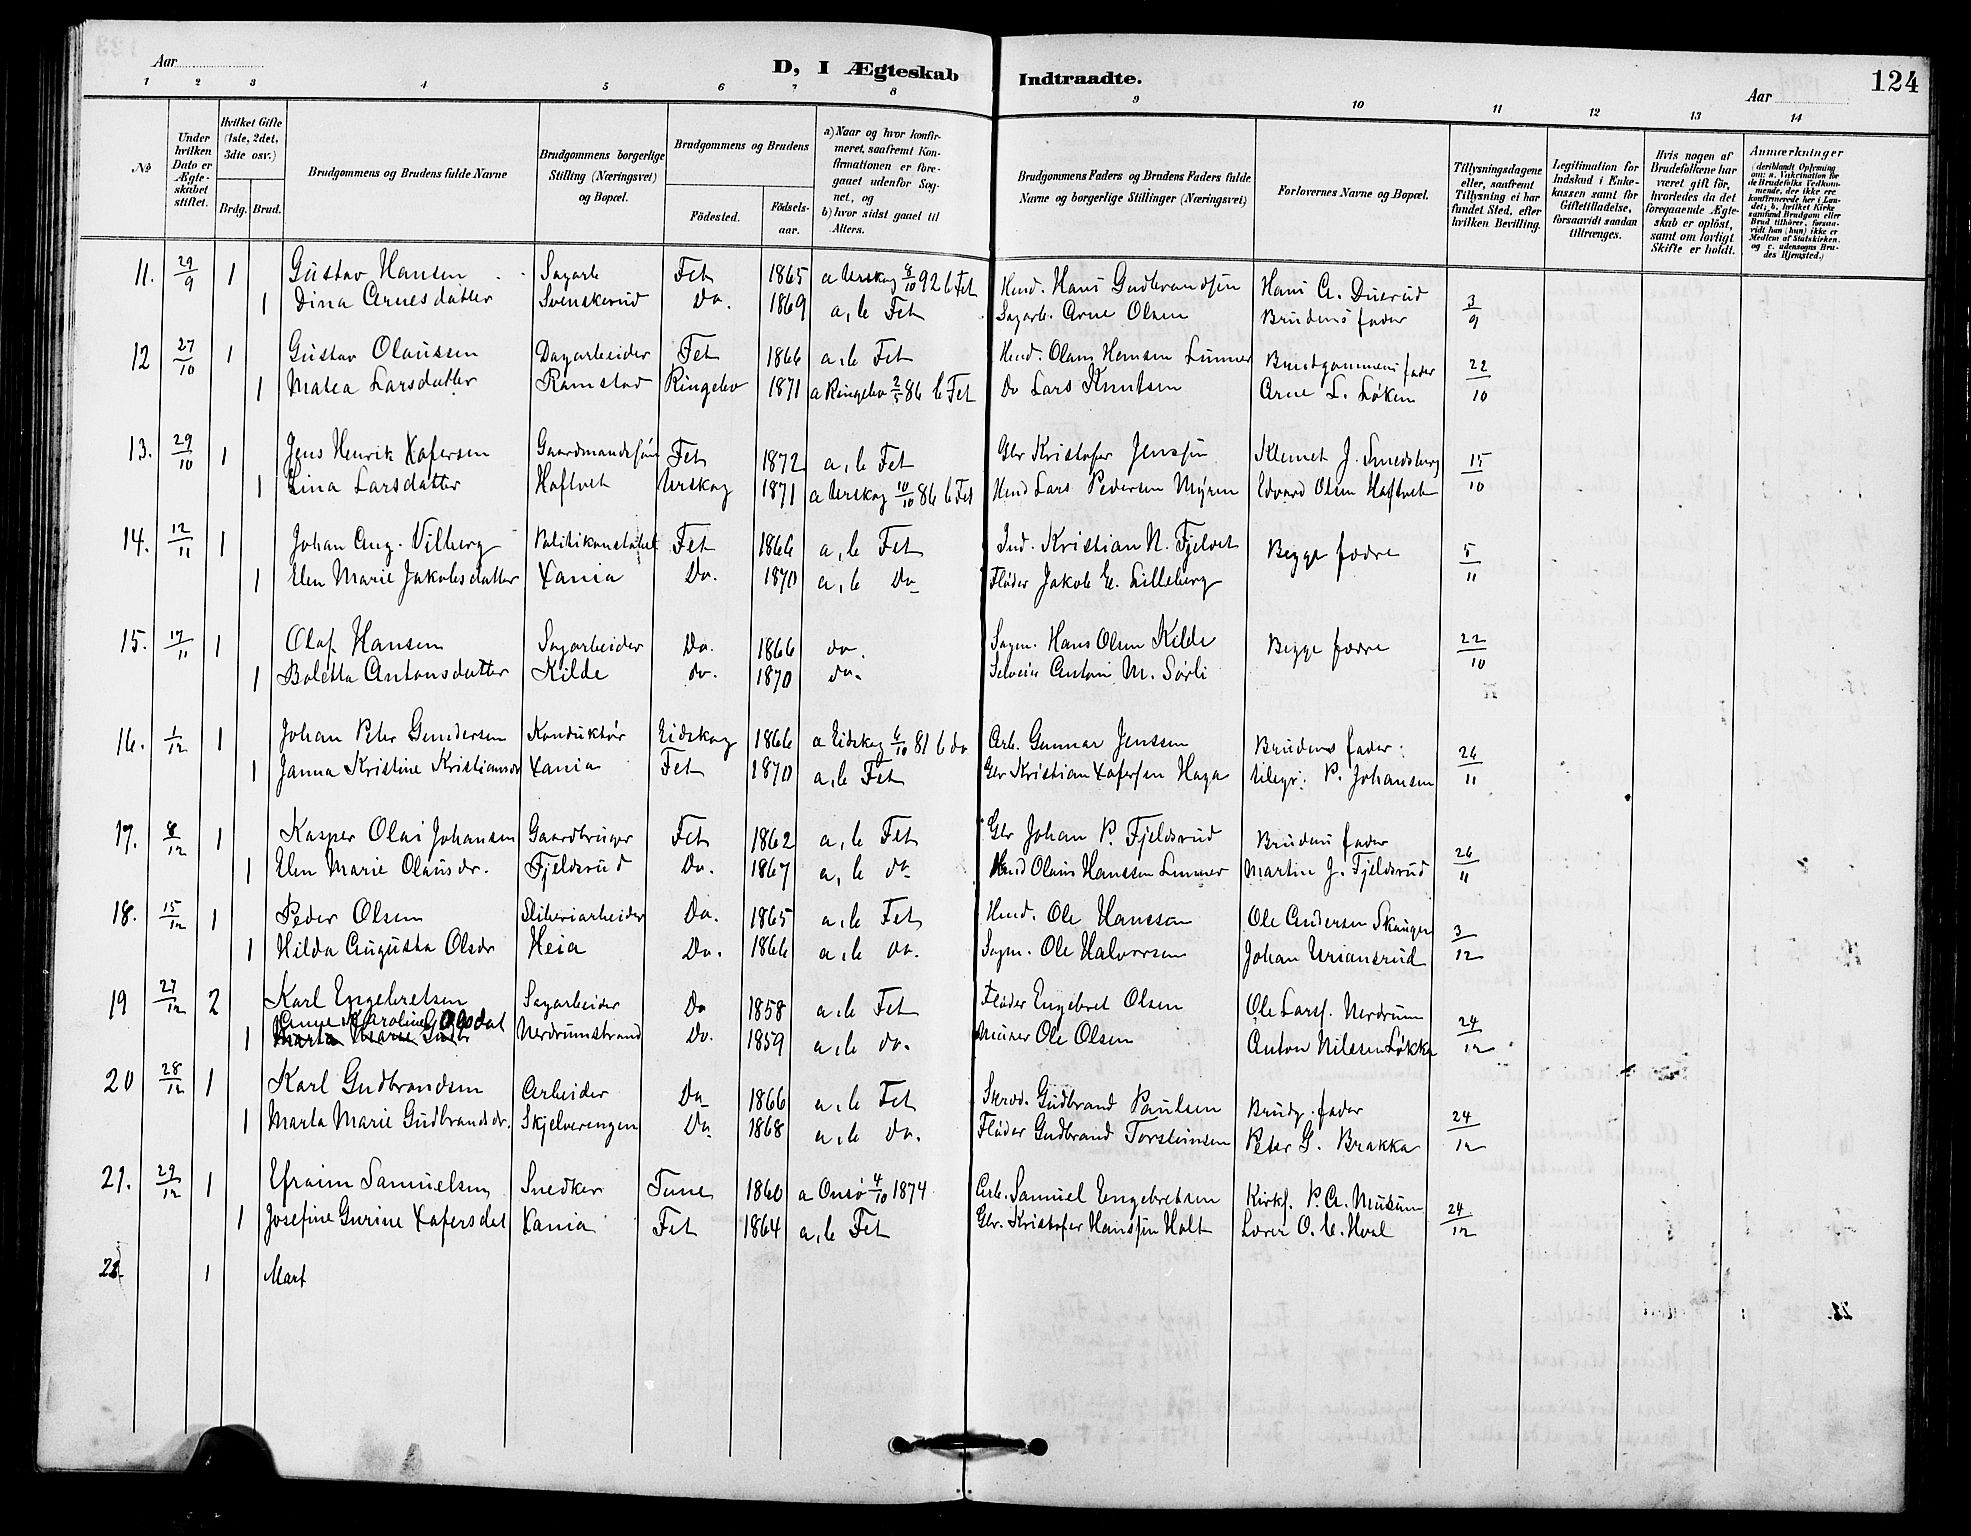 Aar
D, I Ægteskab Indtraadte.
Aar
124
1 2 3 4 5 6 7 8 9 10 11 12 13 14
No
Under hvilken Dato er Ægteskabet stiftet.
Hvilket Gifte (1ste, 2det, 3die osv.)
Brdg. Brud.
Brudgommens og Brudens fulde Navne
Brudgommens borgerlige Stilling (Næringsvei) og Bopæl.
Brudgommens og Brudens
Födested.
Födsels-aar.
a) Naar og hvor konfirmeret, saafremt Konfirmationen er foregaaet udenfor Sognet, og
b) hvor sidst gaaet til Alters.
Brudgommens Faders og Brudens Faders fulde Navne og borgerlige Stillinger (Næringsvei)
Forlovernes Navne og Bopæl.
Tillysningsdagene eller, saafremt Tillysning ei har fundet Sted, efter hvilken Bevilling.
Legitimation for Indskud i Enkekassen samt for Giftetilladelse, forsaavidt saadan tiltrænges.
Hvis nogen af Brudefolkene har været gift för, hvorledes da det foregaaende Ægteskab er oplöst, samt om lovligt Skifte er holdt.
Anmærkninger
11. 29/9 1 Gustav Hansen Sagarb Fet 1865 a Urskog 8/10 92 b Fet Husd. Hans Gudbrandsen Hans A. Duerud 3/9
1 Dina Arnesdatter Svenskerud Do. 1869 a, b Fet Sagarb. Arne Olsen Brudens fader
12 27/10 1 Gustav Olaussen Dagarbeider Fet 1866 a. b Fet Husd. Olaus Hansen Linner Brudgommens fader 22/10
1 Matea Larsdatter Ramstad Ringebo 1871 a Ringebo 2/5 86 b Fet Do Lars Knutsen Arne L. Løken
13. 29/10 1 Jens Henrik Xofersen Gaardmandssøn Fet 1872 a, b Fet Gbr Kristofer Jenssen Klemet J. Smedsberg 15/10
1 Lina Larsdatter Haftvet Urskog 1871 a Urskog 10/10 86 b Fet Husd Lars Pedersen Myren Edvard Olsen Haftvet
14. 12/11 1 Johan Aug. Vilberg Politikonstabel Fet 1866 a, b Fet Ind. Kristian N. Fjelvet Begge fædre 5/11
1 Elen Marie Jakobsdatter Xania Do. 1870 a, b Do Fløder Jakob E. Lilleberg
15. 17/11 1 Olaf Hansen Sagarbeider Do. 1866 do. Sagm. Hans Olsen Kilde Begge fædre 22/10
1 Boletta Antonsdatter Kilde do. 1870 do. Selveier Anton M. Sørli
16. 1/12 1 Johan Peter Gundersen Konduktør Eidskog 1866 a Eidskog 6/10 81 b do Arb. Gunnar Jenssen Brudens fader: 26/11
1 Janna Kristine Kristiansdr Xania Fet 1870 a, b Fet Gbr Kristian Xofersen Haga P. Johansen
17. 8/12 1 Kasper Olai Johansen Gaardbruger Fet 1862 a, b Fet Gbr Johan P. Fjeldsrud Brudens fader 26/11
1 Elen Marie Olausdr. Fjeldsrud Do. 1867 a, b do Husd Olaus Hanssen Linner Martin J. Fjeldsrud
18. 15/12 1 Peder Olsen Sliberiarbeider Do. 1865 a, b Fet Husd. Ole Hanssen Ole Andersen Skauger 3/12
1 Hilda Augusta Olsdr Heia Do. 1866 a, b do. Sagm. Ole Halvorsen Johan Uriansrud
19 27/12 2 Karl Engebretsen Sagarbeider Do 1858 a, b Fet Fløder Engebret Olsen Ole Larss. Nerdrum 24/12
Anne Karoline Olsdat
1 Marta Marie Nerdrumstrand Do. 1859 a, b do. Ole Olsen Anton Nilssen Løkka
20 28/12 1 Karl Gudbrandsen Arbeider Do 1866 a, b Fet Skræd. Gudbrand Paulsen Brudg. fader 24/12
1 Marta Marie Gudbrandsdr. Skjelverengen Do. 1868 a, b do. Fløder Gudbrand Torsteinsen Peter G. Brakka
21. 29/12 1 Efraim Samuelsen Snedker Tune 1860 a Onsø 4/10 1874 Arb. Samuel Engebretsen Kirks. P. A. Musum 24/12
1 Josefine Gurine Xofersdat Xania Fet 1864 a, b Fet Gbr. Kristofer Hanssen Holt Lærer O. E. Hval
22. 1 Mart